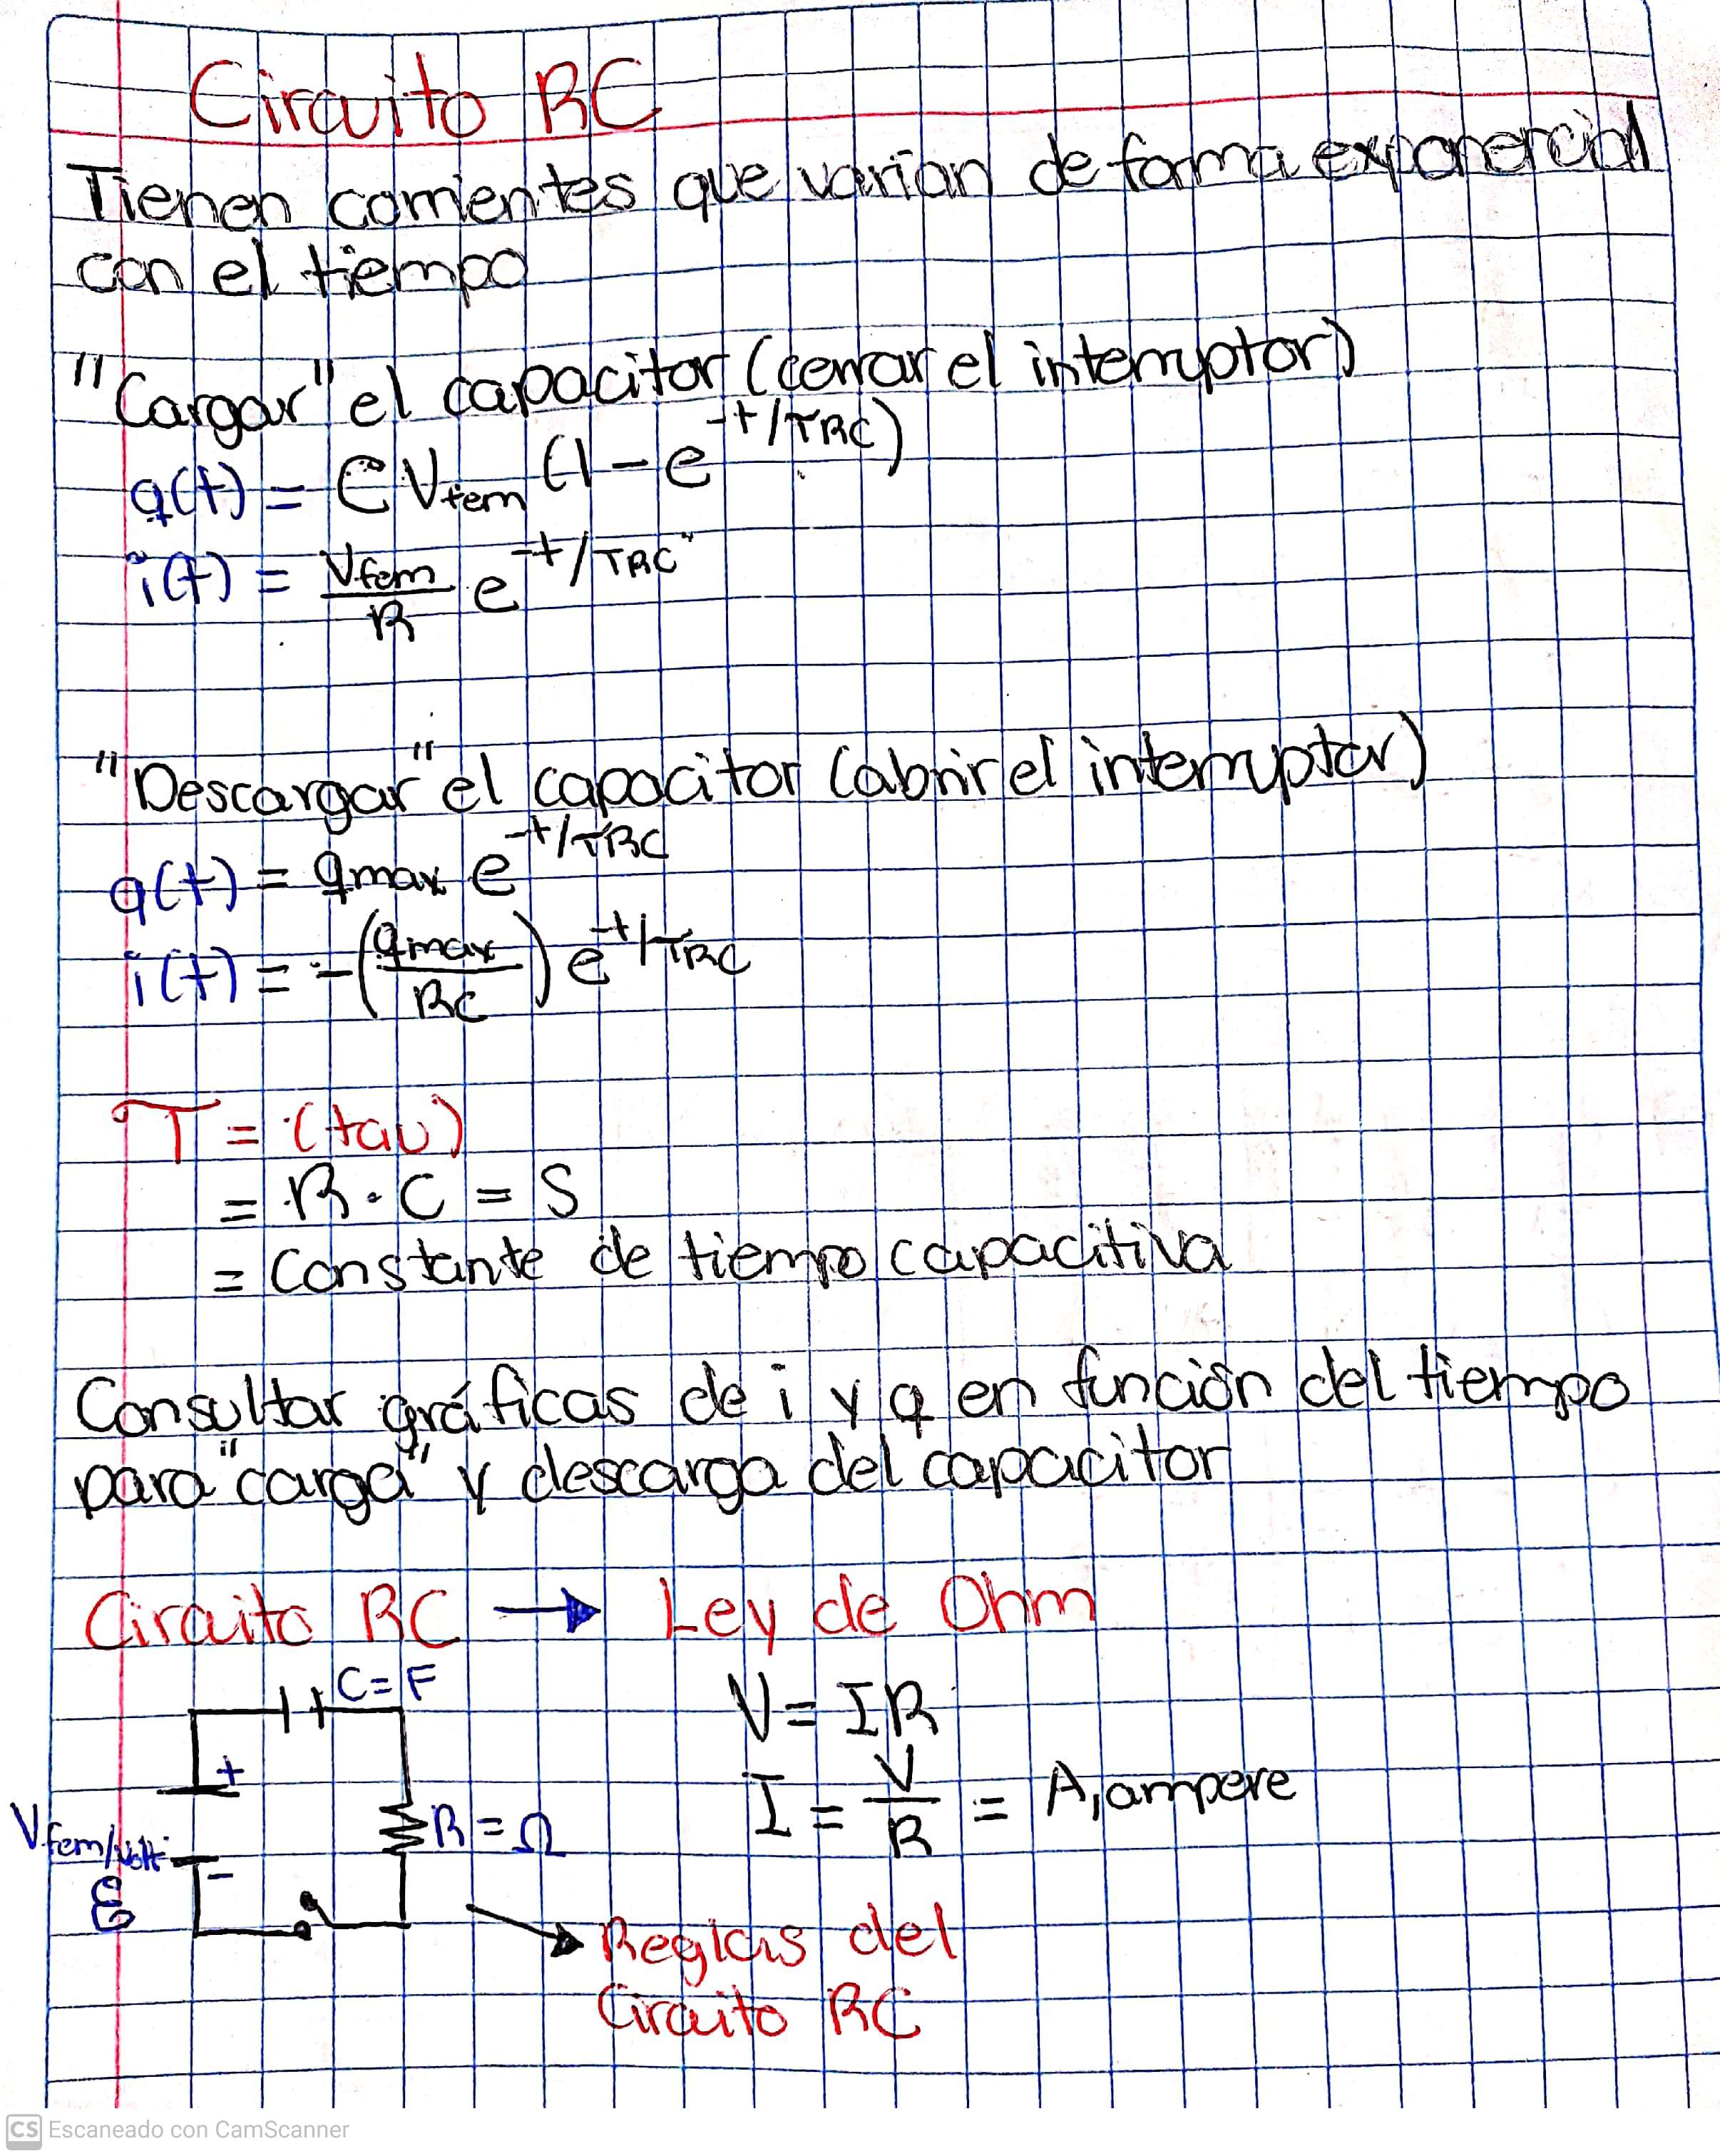 Circuito RC
Tienen corrientes que varian de forma exponencial
con el tiempo
"Cargar" el capacitor (cerrar el interruptor)
q(t) = C Vfem (1 - e^-t/τRC)
i(t) = Vfem/R e^-t/τRC
"Descargar" el capacitor (abrir el interruptor)
q(t) = qmax e^-t/τRC
i(t) = -(qmax/RC) e^-t/τRC
τ = (tau)
= R · C = S
= Constante de tiempo capacitiva
Consultar gráficas de i y q en función del tiempo
para "carga" y descarga del capacitor
Circuito RC → Ley de Ohm
C = F
V = IR
+
I = V/R = A, ampere
Vfem/Volt
R = Ω
-
ε
Reglas del
Circuito RC
CS Escaneado con CamScanner